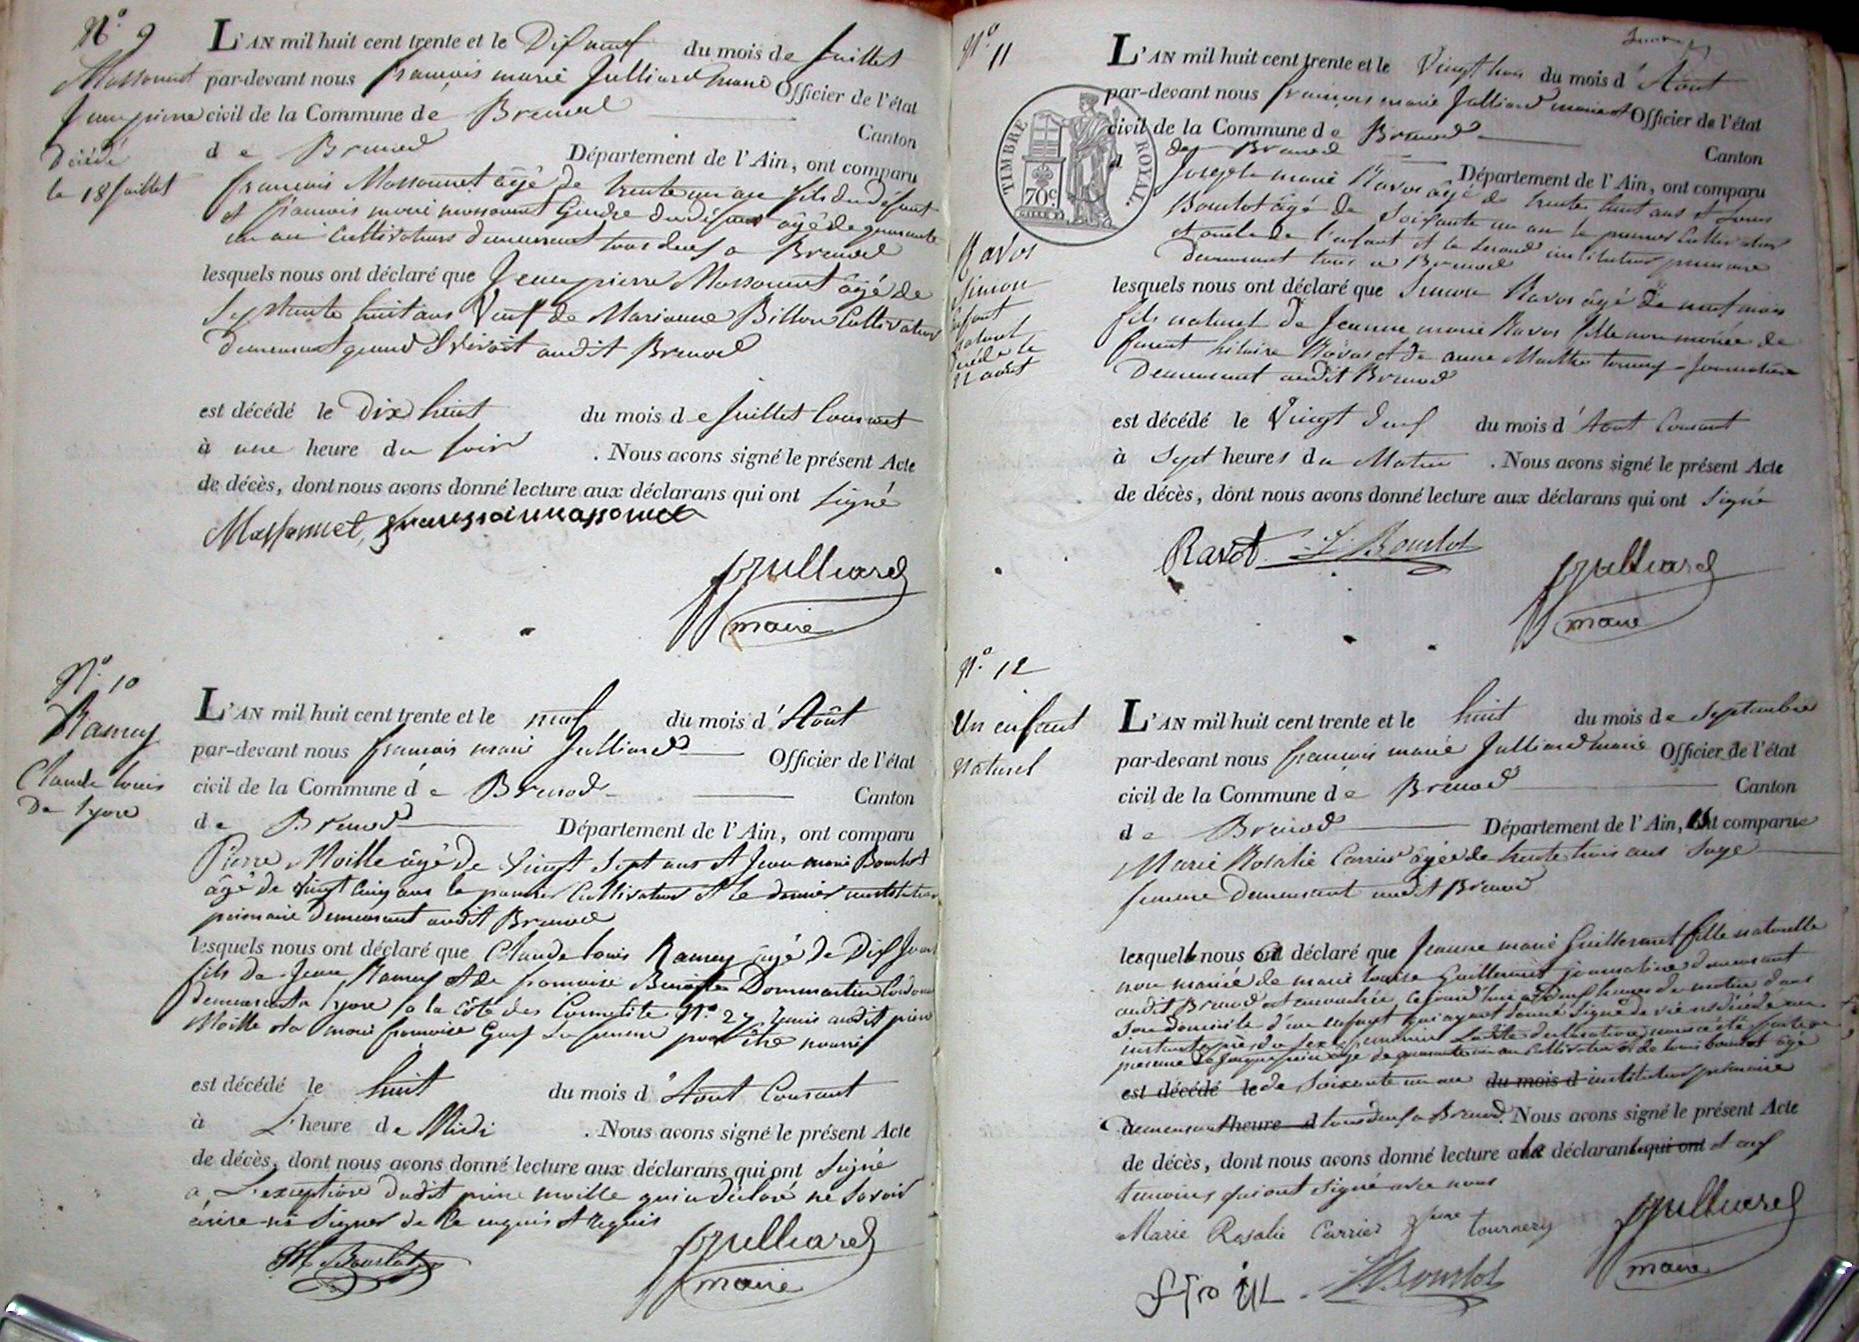 N.º 9
Massonnet
Jean pierre
décédé
le 18 Juillet
L'AN mil huit cent trente et le Dix neuf du mois de Juillet
par-devant nous francois marie Julliard maire Officier de l'état
civil de la Commune de Brenod
Canton
de Brenod Département de l'Ain, ont comparu
francois Massonnet âgé de trente un an fils du défunt
et francois marie massonnet Gendre du défunt âgé de quarante
un an cultivateurs demeurant tous deux a Brenod
lesquels nous ont déclaré que Jean pierre Massonnet âgé de
Septante huit ans Veuf de Marianne Billon Cultivateur
demeurant quand vivait audit Brenod
est décédé le Dix huit du mois de Juillet Courant
à une heure du soir . Nous avons signé le présent Acte
de décès, dont nous avons donné lecture aux déclarans qui ont signé
Massonnet, francois massonnet
Julliard
maire
N.º 10
Ramuy
Claude louis
De lyon
L'AN mil huit cent trente et le neuf du mois d'Août
par-devant nous francois marie Julliard Officier de l'état
civil de la Commune de Brenod
Canton
de Brenod Département de l'Ain, ont comparu
Pierre Moille âgé de vingt sept ans et Jean marie Bourlot
âgé de vingt cinq ans le premier Cultivateur et le dernier instituteur
primaire demeurant audit Brenod
lesquels nous ont déclaré que Claude louis Ramuy âgé de Dix Jours
fils de Jean Ramuy et de francoise Dommartin
demeurant a lyon a la côte des Carmelite N.º 27 mis audit pierre
Moille et a marie francoise sa femme pour être nourri
est décédé le huit du mois d'Aout Courant
à L'heure de Midi . Nous avons signé le présent Acte
de décès, dont nous avons donné lecture aux déclarans qui ont signé
a L'exception dudit pierre moille qui a déclaré ne savoir
écrire ni signer de ce enquis et requis
Bourlot
Julliard
maire
N.º 11
TIMBRE ROYAL.
70c
Ravot
Simon
Enfant
naturel
décédé le
22 aout
L'AN mil huit cent trente et le Vingt trois du mois d'Aout
par-devant nous francois marie Julliard maire et Officier de l'état
civil de la Commune de Brenod
Canton
d de Brenod Département de l'Ain, ont comparu
Joseph marie Ravot âgé de trente huit ans et louis
Bourlot âgé de soixante un an le premier Cultivateur
et oncle de l'enfant et le second instituteur primaire
demeurant tous a Brenod
lesquels nous ont déclaré que Simon Ravot âgé de neuf mois
fils naturel de Jeanne marie Ravot fille non mariée de
hilaire Ravot et de anne Marthe Journalière
Demeurant audit Brenod
est décédé le Vingt deux du mois d'Aout Courant
à Sept heures du Matin . Nous avons signé le présent Acte
de décès, dont nous avons donné lecture aux déclarans qui ont signé
Ravot. L. Bourlot
Julliard
maire
N.º 12
Un enfant
naturel
L'AN mil huit cent trente et le huit du mois de Septembre
par-devant nous francois marie Julliard maire Officier de l'état
civil de la Commune de Brenod
Canton
de Brenod Département de l'Ain, ont comparue
Marie Rosalie Carrier âgée de trente trois ans sage
femme demeurant audit Brenod
lesquelle nous ont déclaré que Jeanne marie Guillermet fille naturelle
non mariée de marie louise Guillermet journalière demeurant
audit Brenod est accouchée cejourd'hui a heures du matin dans
son domicile d'un enfant qui ayant donné signe de vie est décédé un
instant après du sexe feminin Ladite declaration nous a été faite en
presence de âgé de quarante un an Cultivateur et de louis bourlot âgé
est décédé le de soixante un an du mois d instituteur primaire
demeurant heure d tous deux a Brenod. Nous avons signé le présent Acte
de décès, dont nous avons donné lecture a la déclarante qui ont et aux
temoins qui ont signé avec nous
Marie Rosalie Carrier tournery
Julliard
maire
L. Bourlot